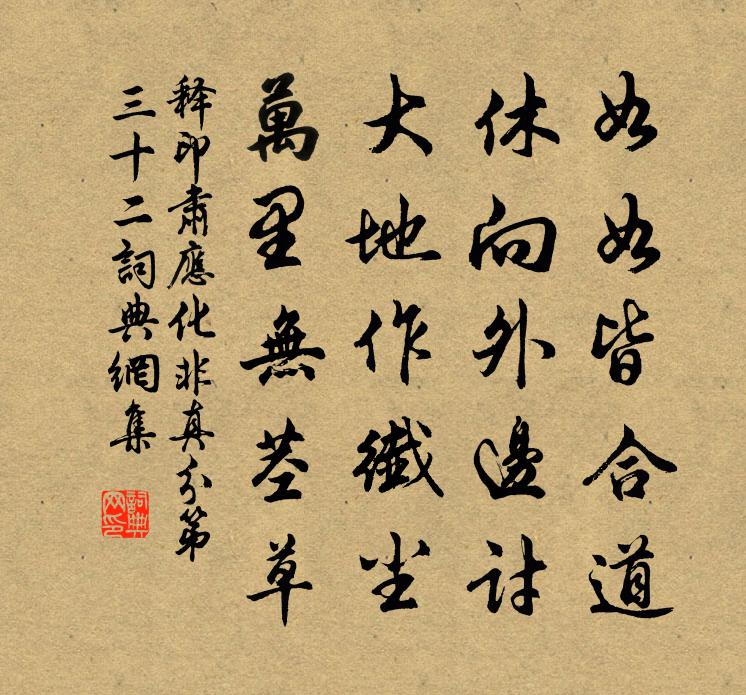 如如皆合道
休向外邊討
大地作纖尘
萬里無茎草
释印肅應化非真分第
三十二詞典網集
詞典网印